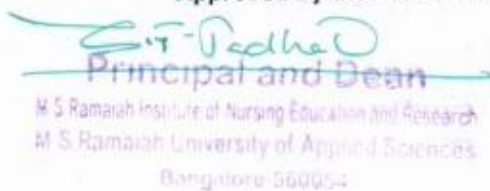 Principal and Dean
M S Ramaiah Institute of Nursing Education and Research
M S Ramaiah University of Applied Sciences
Bangalore-560054